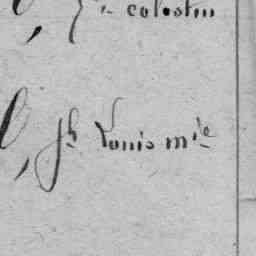 celestin
l, jh Louis mie